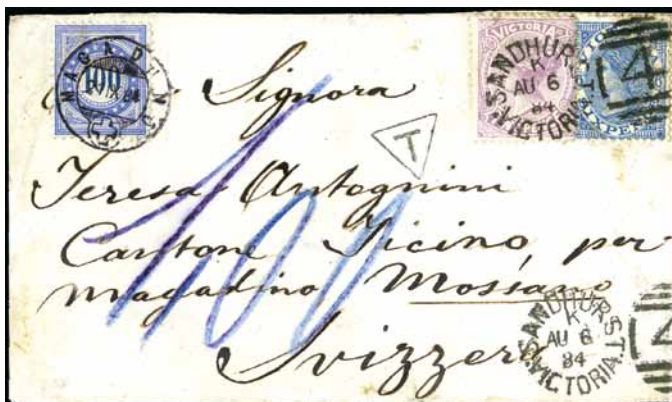 MAGADINO
100
VICTORIA
SANDHURST
K
AU 6
84
VICTORIA
SIX PENCE
4
Signora
T
Teresa Antognini
Cantone Ticino, per
Magadino Mossano
Svizzera
100
SANDHURST
K
AU 6
84
VICTORIA